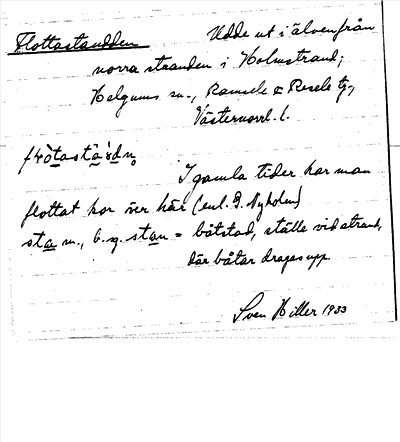 Flottastaudden Udde ut i älven från
norra stranden i Holmstrand,
Helgums sn., Ramsele & Resele tg.,
Västernorrl. l.
I gamla tider har man
flottat kor över här (enl. Nyholm)
sta n., b. sg. stan = båtstad, ställe vid strand,
där båtar dragas upp.
Sven Hiller 1933